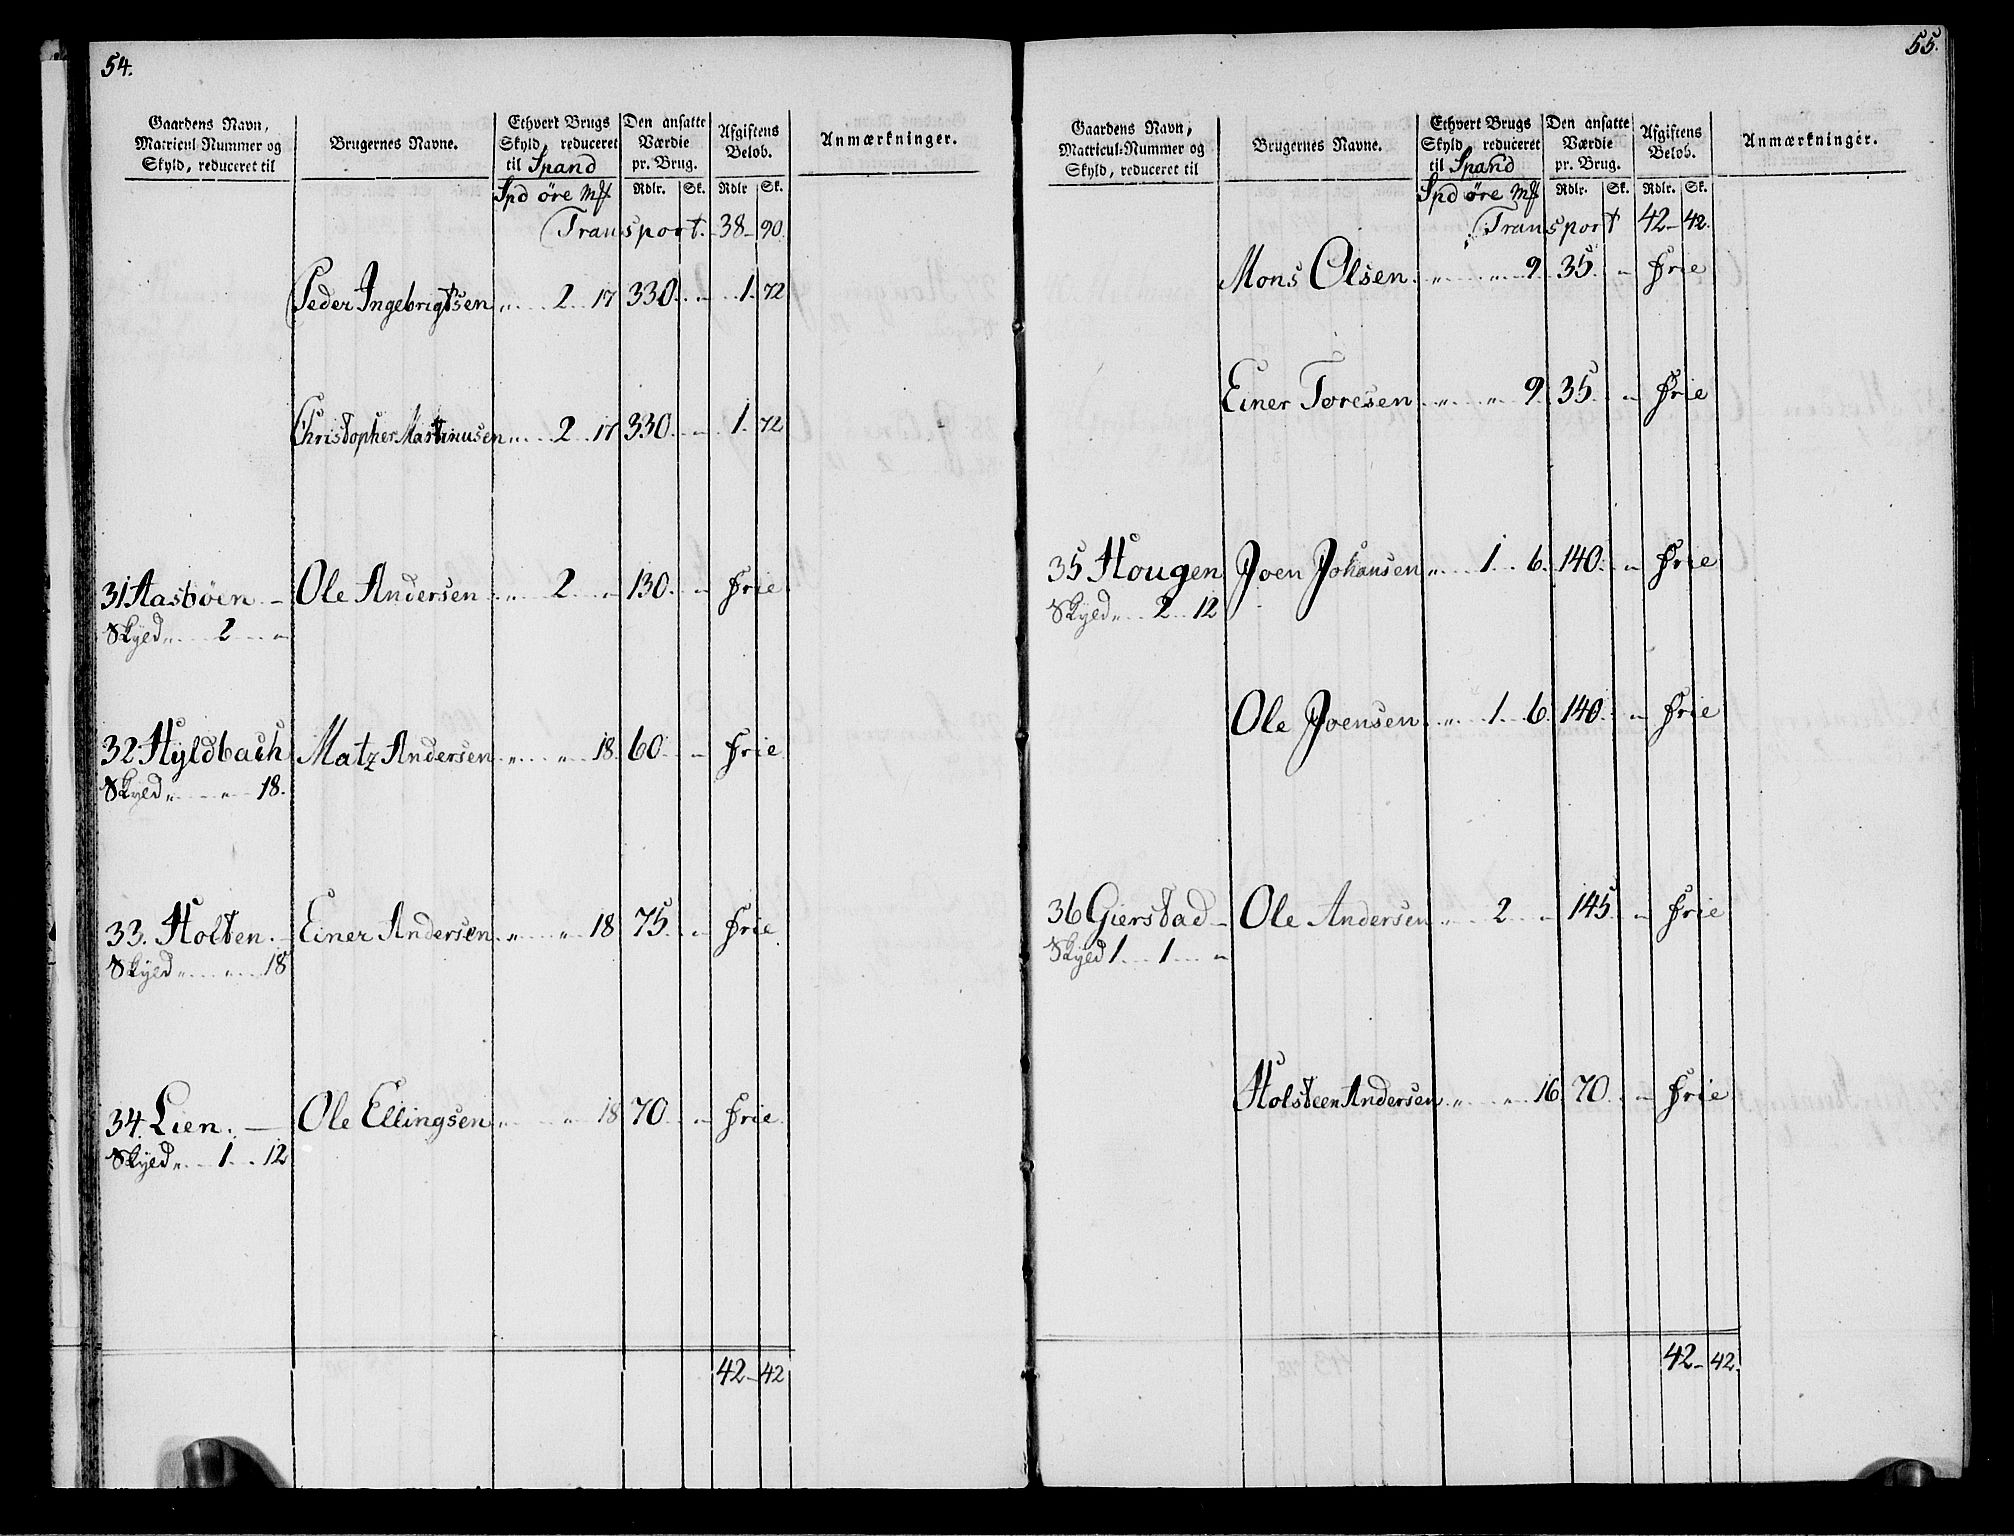 54.
Gaardens Navn, Matricul-Nummer og Skyld, reduceret til
Brugernes Navne.
Ethvert Brugs Skyld, reduceret til Spand
Den ansatte Værdie pr. Brug.
Afgiftens Beløb.
Anmærkninger.
Spd öre Mk Rdlr. Sk. Rdlr Sk.
(Transport. - 38 - 90.
Peder Ingebrigtsen „ 2 17 330. - 1. 72
Christopher Martinusen „ 2 17 330. - 1. 72
31 Aasböen - Ole Andersen „ 2 „ 130. „ Frie
Skyld „ 2 „
32 Hyldbach Matz Andersen „ „ 18. 60. „ Frie
Skyld „ „ 18.
33. Holten. Einer Andersen. „ „ 18 75. „ Frie
Skyld „ „ 18
34. Lien. - Ole Ellingsen „ „ 18 70 „ Frie.
Skyld „ 1 12
42 - 42
55.
Gaardens Navn, Matricul-Nummer og Skyld, reduceret til
Brugernes Navne.
Ethvert Brugs Skyld, reduceret til Spand
Den ansatte Værdie pr. Brug.
Afgiftens Beløb.
Anmærkninger.
Spd öre Mk Rdlr. Sk. Rdlr. Sk.
(Transport 42 - 42.
Mons Olsen. „ „ 9. 35. „ Frie
Einer Toresen „ „ 9 35. „ Frie
35 Hougen Joen Johansen „ 1 6. 140. „ Frie
Skyld „ 2 12
Ole Joensen „ 1 6. 140. „ Frie
36 Gierstad - Ole Andersen „ 2 „ 145. „ Frie
Skyld 1 1 „
Holsteen Andersen „ „ 16 70 „ Frie
42 - 42.